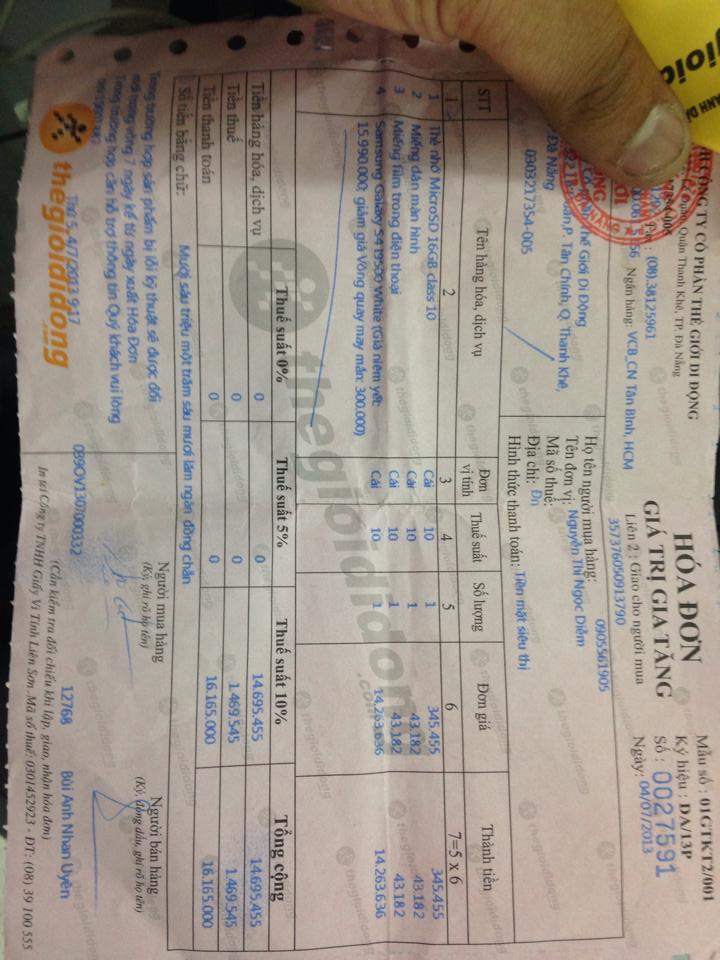 CÔNG TY CỔ PHẦN THẾ GIỚI DI ĐỘNG
Quận Thanh Khê, TP. Đà Nẵng
(08).38125961
Ngân hàng: VCB_CN Tân Bình, HCM
HÓA ĐƠN
GIÁ TRỊ GIA TĂNG
Liên 2 : Giao cho người mua
357376050913790
Mẫu số : 01GTKT2/001
Ký hiệu : DA/13P
Số : 0027591
Ngày: 04/07/2013
Thế Giới Di Động
P. Tân Chính, Q. Thanh Khê,
Đà Nẵng
0303217354-005
Họ tên người mua hàng: 0905561905
Tên đơn vị: Nguyễn Thị Ngọc Diễm
Mã số thuế:
Địa chỉ: Đn
Hình thức thanh toán: Tiền mặt siêu thị
STT Tên hàng hóa, dịch vụ Đơn vị tính Thuế suất Số lượng Đơn giá Thành tiền
1 2 3 4 5 6 7=5 x 6
1 Thẻ nhớ MicroSD 16GB class 10 Cái 10 1 345.455 345.455
2 Miếng dán màn hình Cái 10 1 43.182 43.182
3 Miếng film trong điện thoại Cái 10 1 43.182 43.182
4 Samsung Galaxy S4 I9500 White (Giá niêm yết: Cái 10 1 14.263.636 14.263.636
15.990.000; giảm giá Vòng quay may mắn: 300.000)
Thuế suất 0% Thuế suất 5% Thuế suất 10% Tổng cộng
Tiền hàng hóa, dịch vụ 0 0 14.695.455 14.695.455
Tiền thuế 0 0 1.469.545 1.469.545
Tiền thanh toán 0 0 16.165.000 16.165.000
Số tiền bằng chữ: Mười sáu triệu một trăm sáu mươi lăm ngàn đồng chẵn
Trong trường hợp sản phẩm bị lỗi kỹ thuật sẽ được đổi
mới trong vòng 7 ngày kể từ ngày xuất Hóa Đơn
Trong trường hợp cần hỗ trợ thông tin Quý khách vui lòng
Thứ 5, 4/7/2013 9:17
thegioididong
.com
Người mua hàng
(Ký, ghi rõ họ tên)
Người bán hàng
(Ký, đóng dấu, ghi rõ họ tên)
089OV1307000332
12768 Bùi Anh Nhan Uyên
(Cần kiểm tra đối chiếu khi lập, giao, nhận hóa đơn)
In tại Công ty TNHH Giấy Vi Tính Liên Sơn. Mã số thuế: 0301452923 - ĐT: (08) 39 100 555
thegioididong
.com